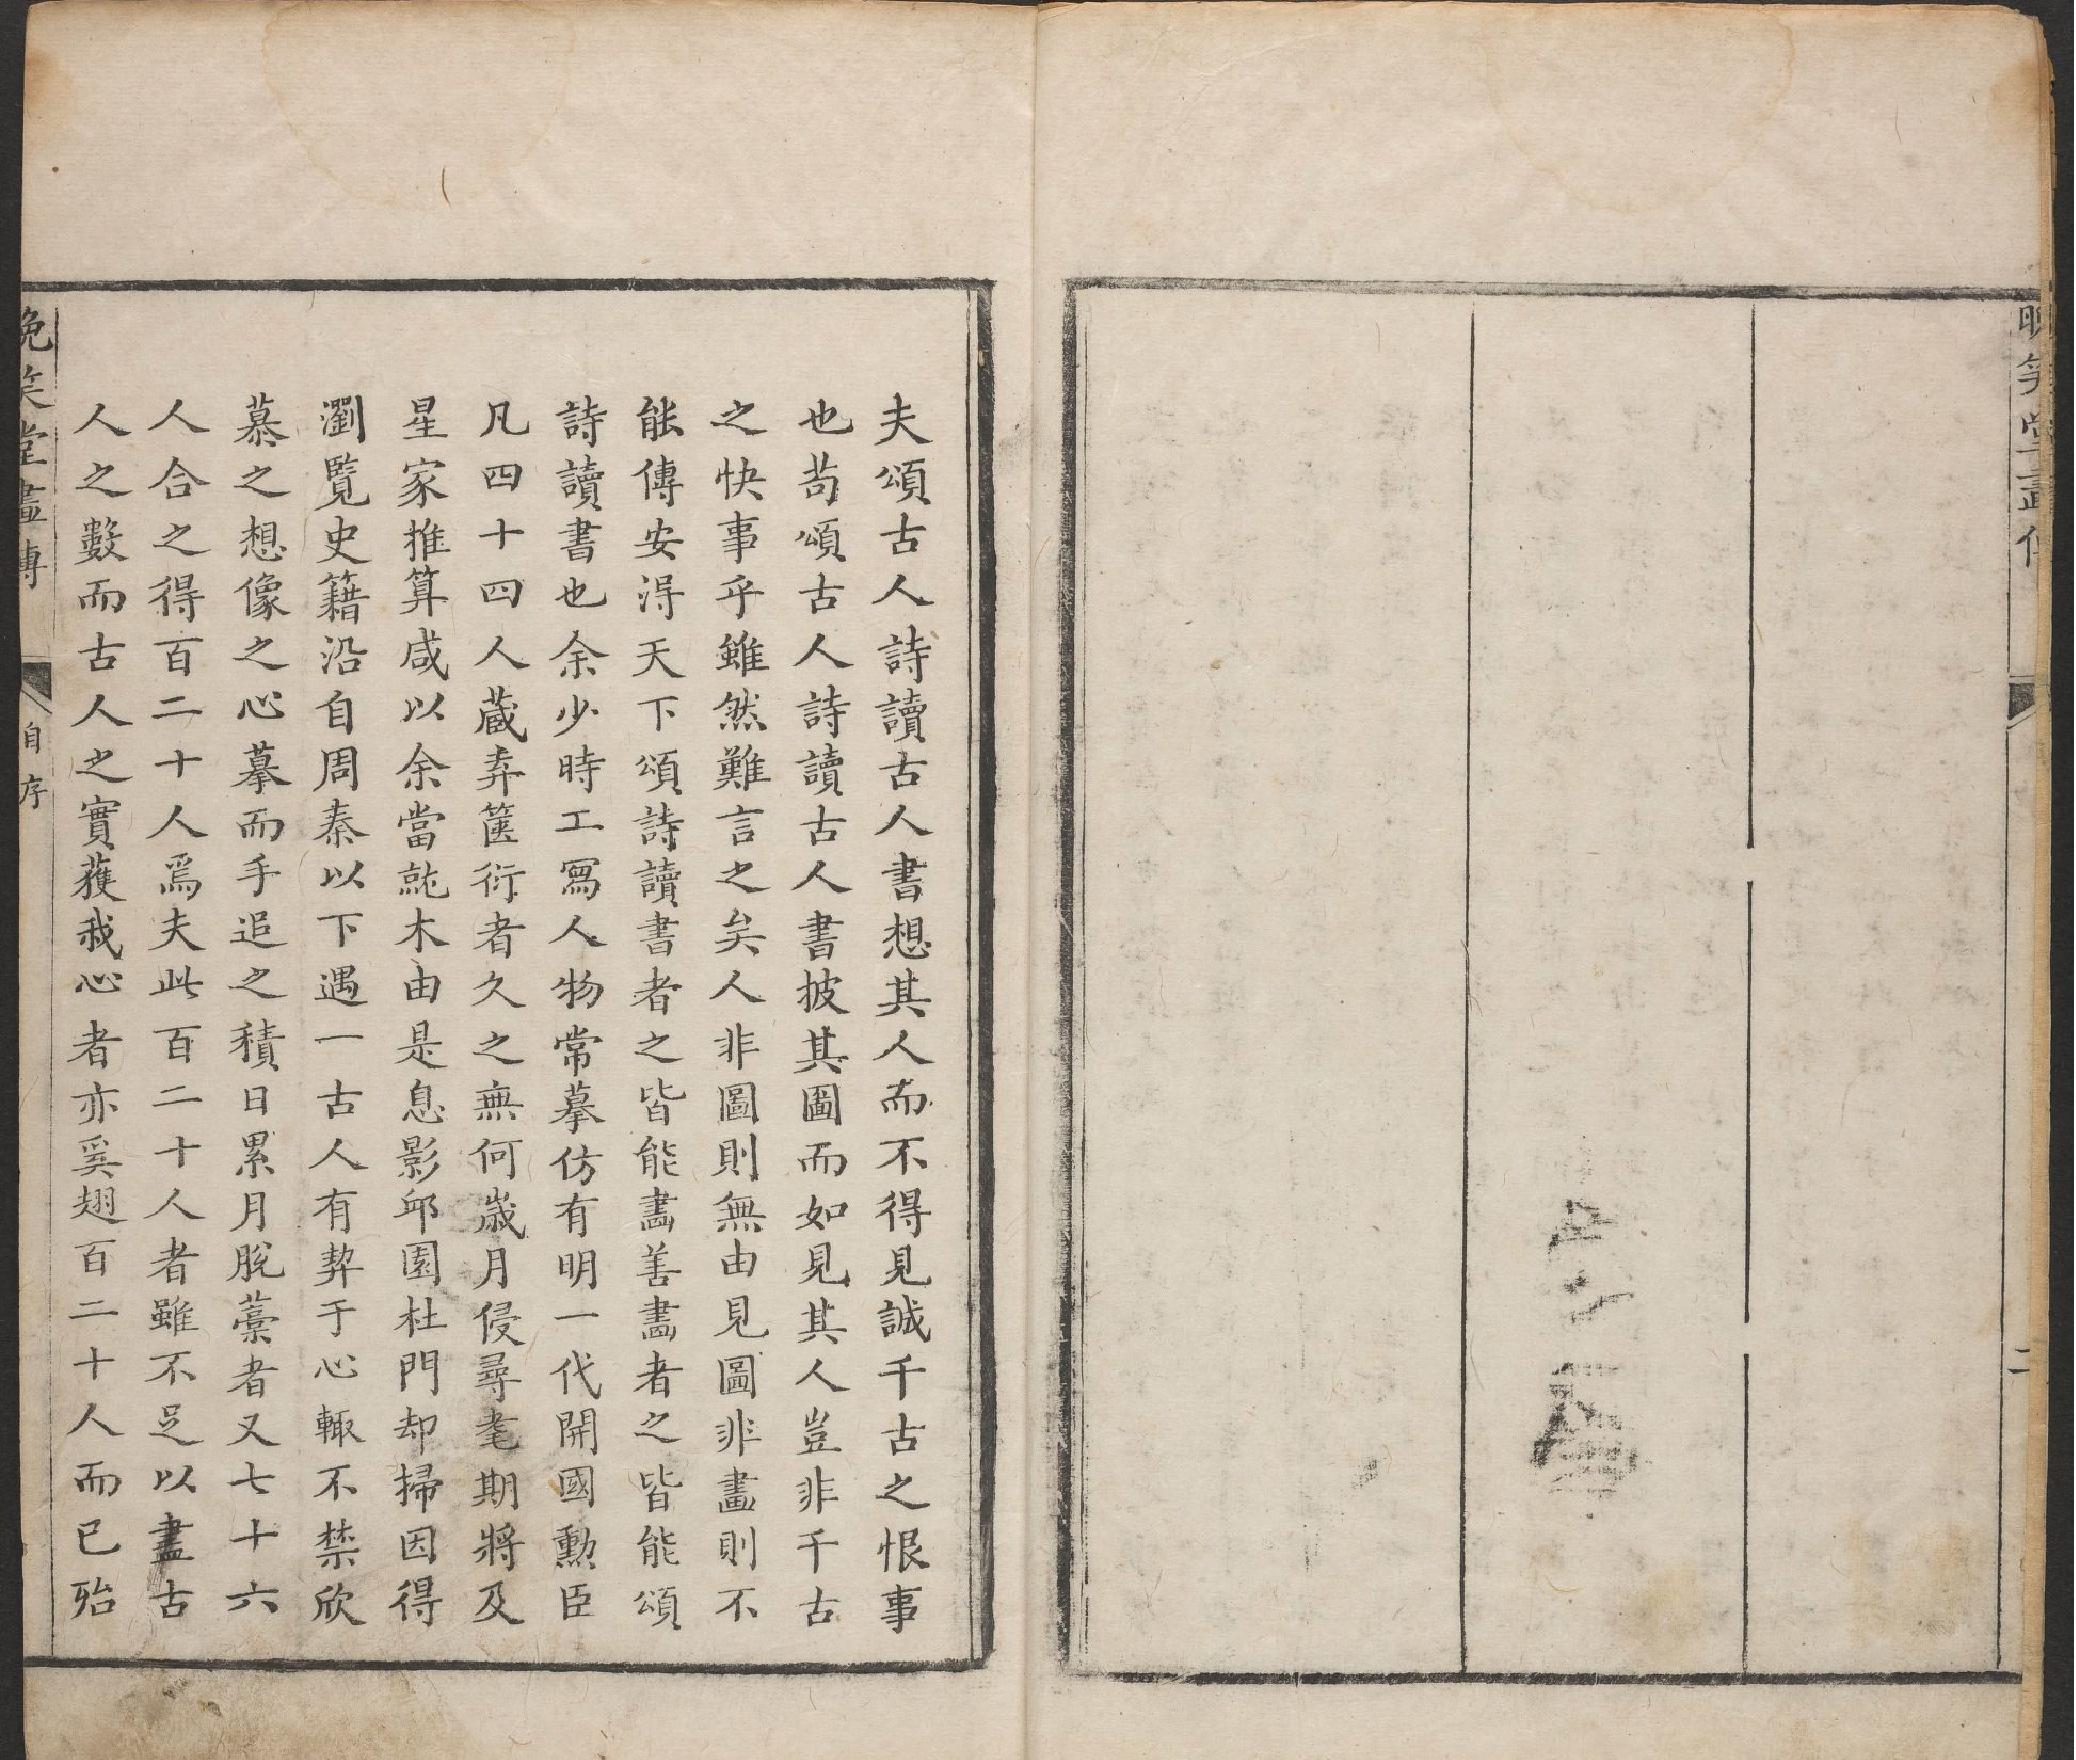 晚笑堂畫傳
二
夫頌古人詩讀古人書想其人而不得見誠千古之恨事
也苟頌古人詩讀古人書披其圖而如見其人豈非千古
之快事乎雖然難言之矣人非圖則無由見圖非畫則不
能傳安得天下頌詩讀書者之皆能畵善畵者之皆能頌
詩讀書也余少時工寫人物常摹仿有明一代開國勳臣
凡四十四人蔵弆篋衍者久之無何歲月侵尋耄期將及
星家推算咸以余當就木由是息影邱園杜門却掃因得
瀏覧史籍沿自周秦以下遇一古人有契于心輙不禁欣
慕之想像之心摹而手追之積日累月脫藁者又七十六
人合之得百二十人焉夫此百二十人者雖不足以盡古
人之數而古人之實獲我心者亦奚翅百二十人而已殆
晚笑堂畫傳
自序